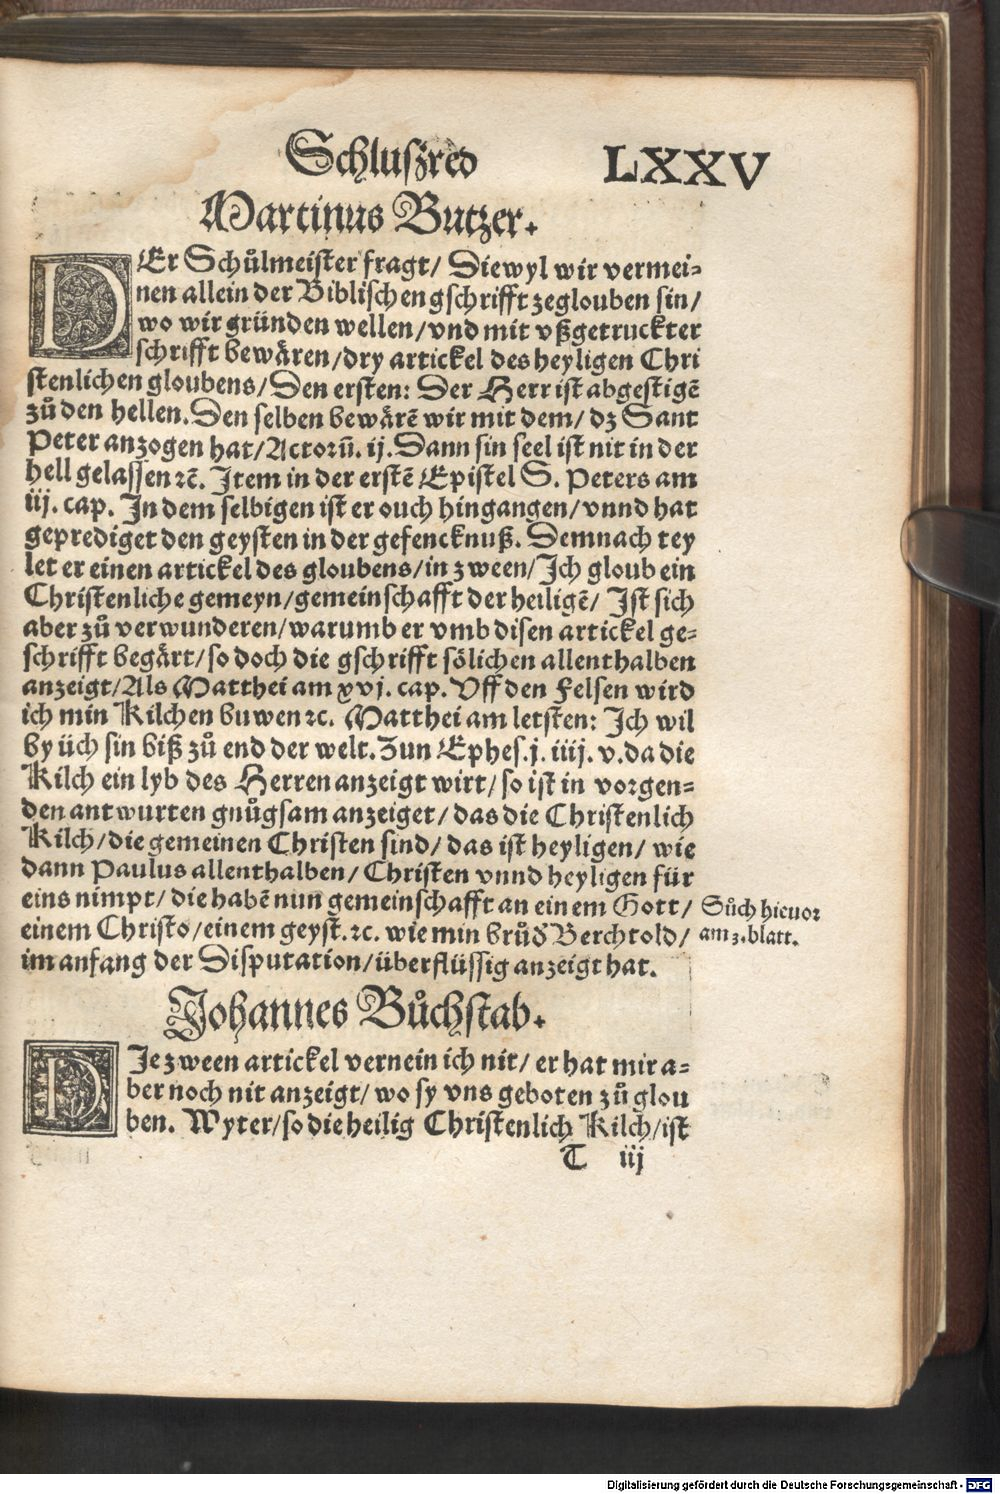 Schluſzred LXXV
Martinus Butzer.
DEr Schůlmeiſter fragt/ Diewyl wir vermei⸗
nen allein der Bibliſchen gſchrifft zeglouben ſin/
wo wir gründen wellen/ vnd mit vßgetruckter
ſchrifft bewären/ dry artickel des heyligen Chri
ſtenlichen gloubens/ Den erſten: Der Herr iſt abgeſtigē
zů den hellen. Den ſelben bewärē wir mit dem/ dz Sant
Peter anzogen hat/ Actorū. ij. Dann ſin ſeel iſt nit in der
hell gelaſſen ꝛc̄. Item in der erſtē Epiſtel S. Peters am
iij. cap. In dem ſelbigen iſt er ouch hingangen/ vnnd hat
geprediget den geyſten in der gefencknuß. Demnach tey
let er einen artickel des gloubens/ in zween/ Ich gloub ein
Chriſtenliche gemeyn/ gemeinſchafft der heiligē/ Iſt ſich
aber zů verwunderen/ warumb er vmb diſen artickel ge⸗
ſchrifft begärt/ ſo doch die gſchrifft ſölichen allenthalben
anzeigt/ Als Matthei am xvj. cap. Vff den Felſen wird
ich min Kilchen buwen ꝛc. Matthei am letſten: Ich wil
by üch ſin biß zů end der welt. Zun Epheſ. j. iiij. v. da die
Kilch ein lyb des Herren anzeigt wirt/ ſo iſt in vorgen⸗
den antwurten gnůgſam anzeiget/ das die Chriſtenlich
Kilch/ die gemeinen Chriſten ſind/ das iſt heyligen/ wie
dann Paulus allenthalben/ Chriſten vnnd heyligen für
eins nimpt/ die habē nun gemeinſchafft an einem Gott/
einem Chriſto/ einem geyſt. ꝛc. wie min brůď Berchtold/
im anfang der Diſputation/ überflüſſig anzeigt hat.
Sůch hieuor
am 3. blatt.
Johannes Bůchſtab.
DIe zween artickel vernein ich nit/ er hat mir a⸗
ber noch nit anzeigt/ wo ſy vns geboten zů glou
ben. Wyter/ ſo die heilig Chriſtenlich Kilch/ iſt
T iij
Digitalisierung gefördert durch die Deutsche Forschungsgemeinschaft - DFG